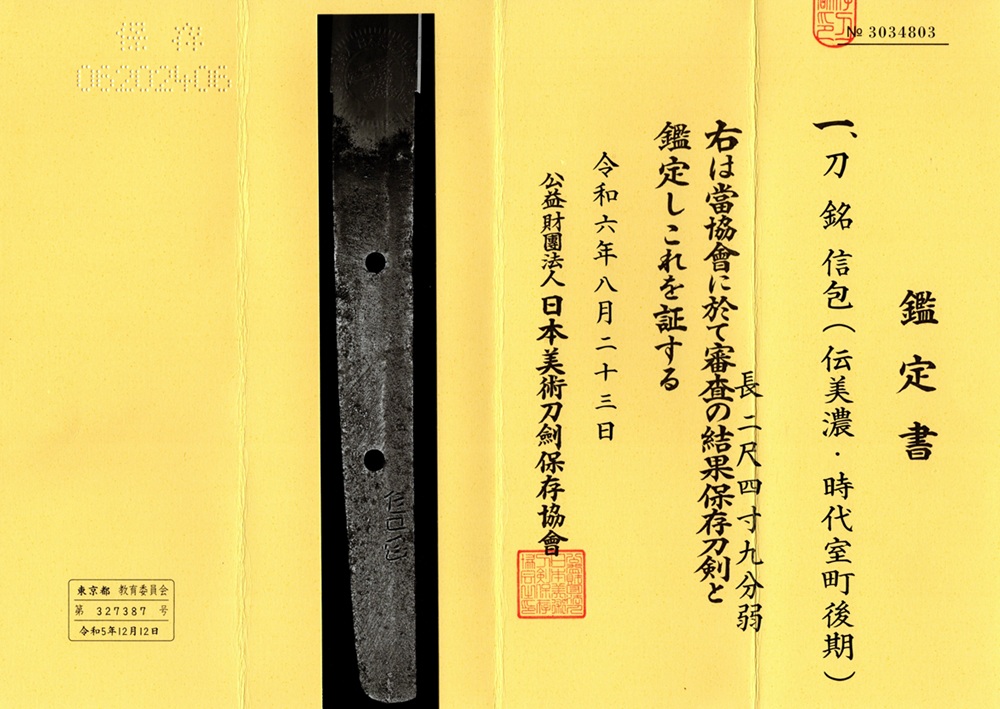 № 3034803
鑑定書
一、刀 銘 信包（伝美濃・時代室町後期）
長 二尺四寸九分弱
右は當協會に於て審査の結果保存刀剣と
鑑定しこれを証する
令和六年八月二十三日
公益財團法人 日本美術刀劍保存協會
信包
保存
06202406
東京都 教育委員会
第 327387 号
令和5年12月12日